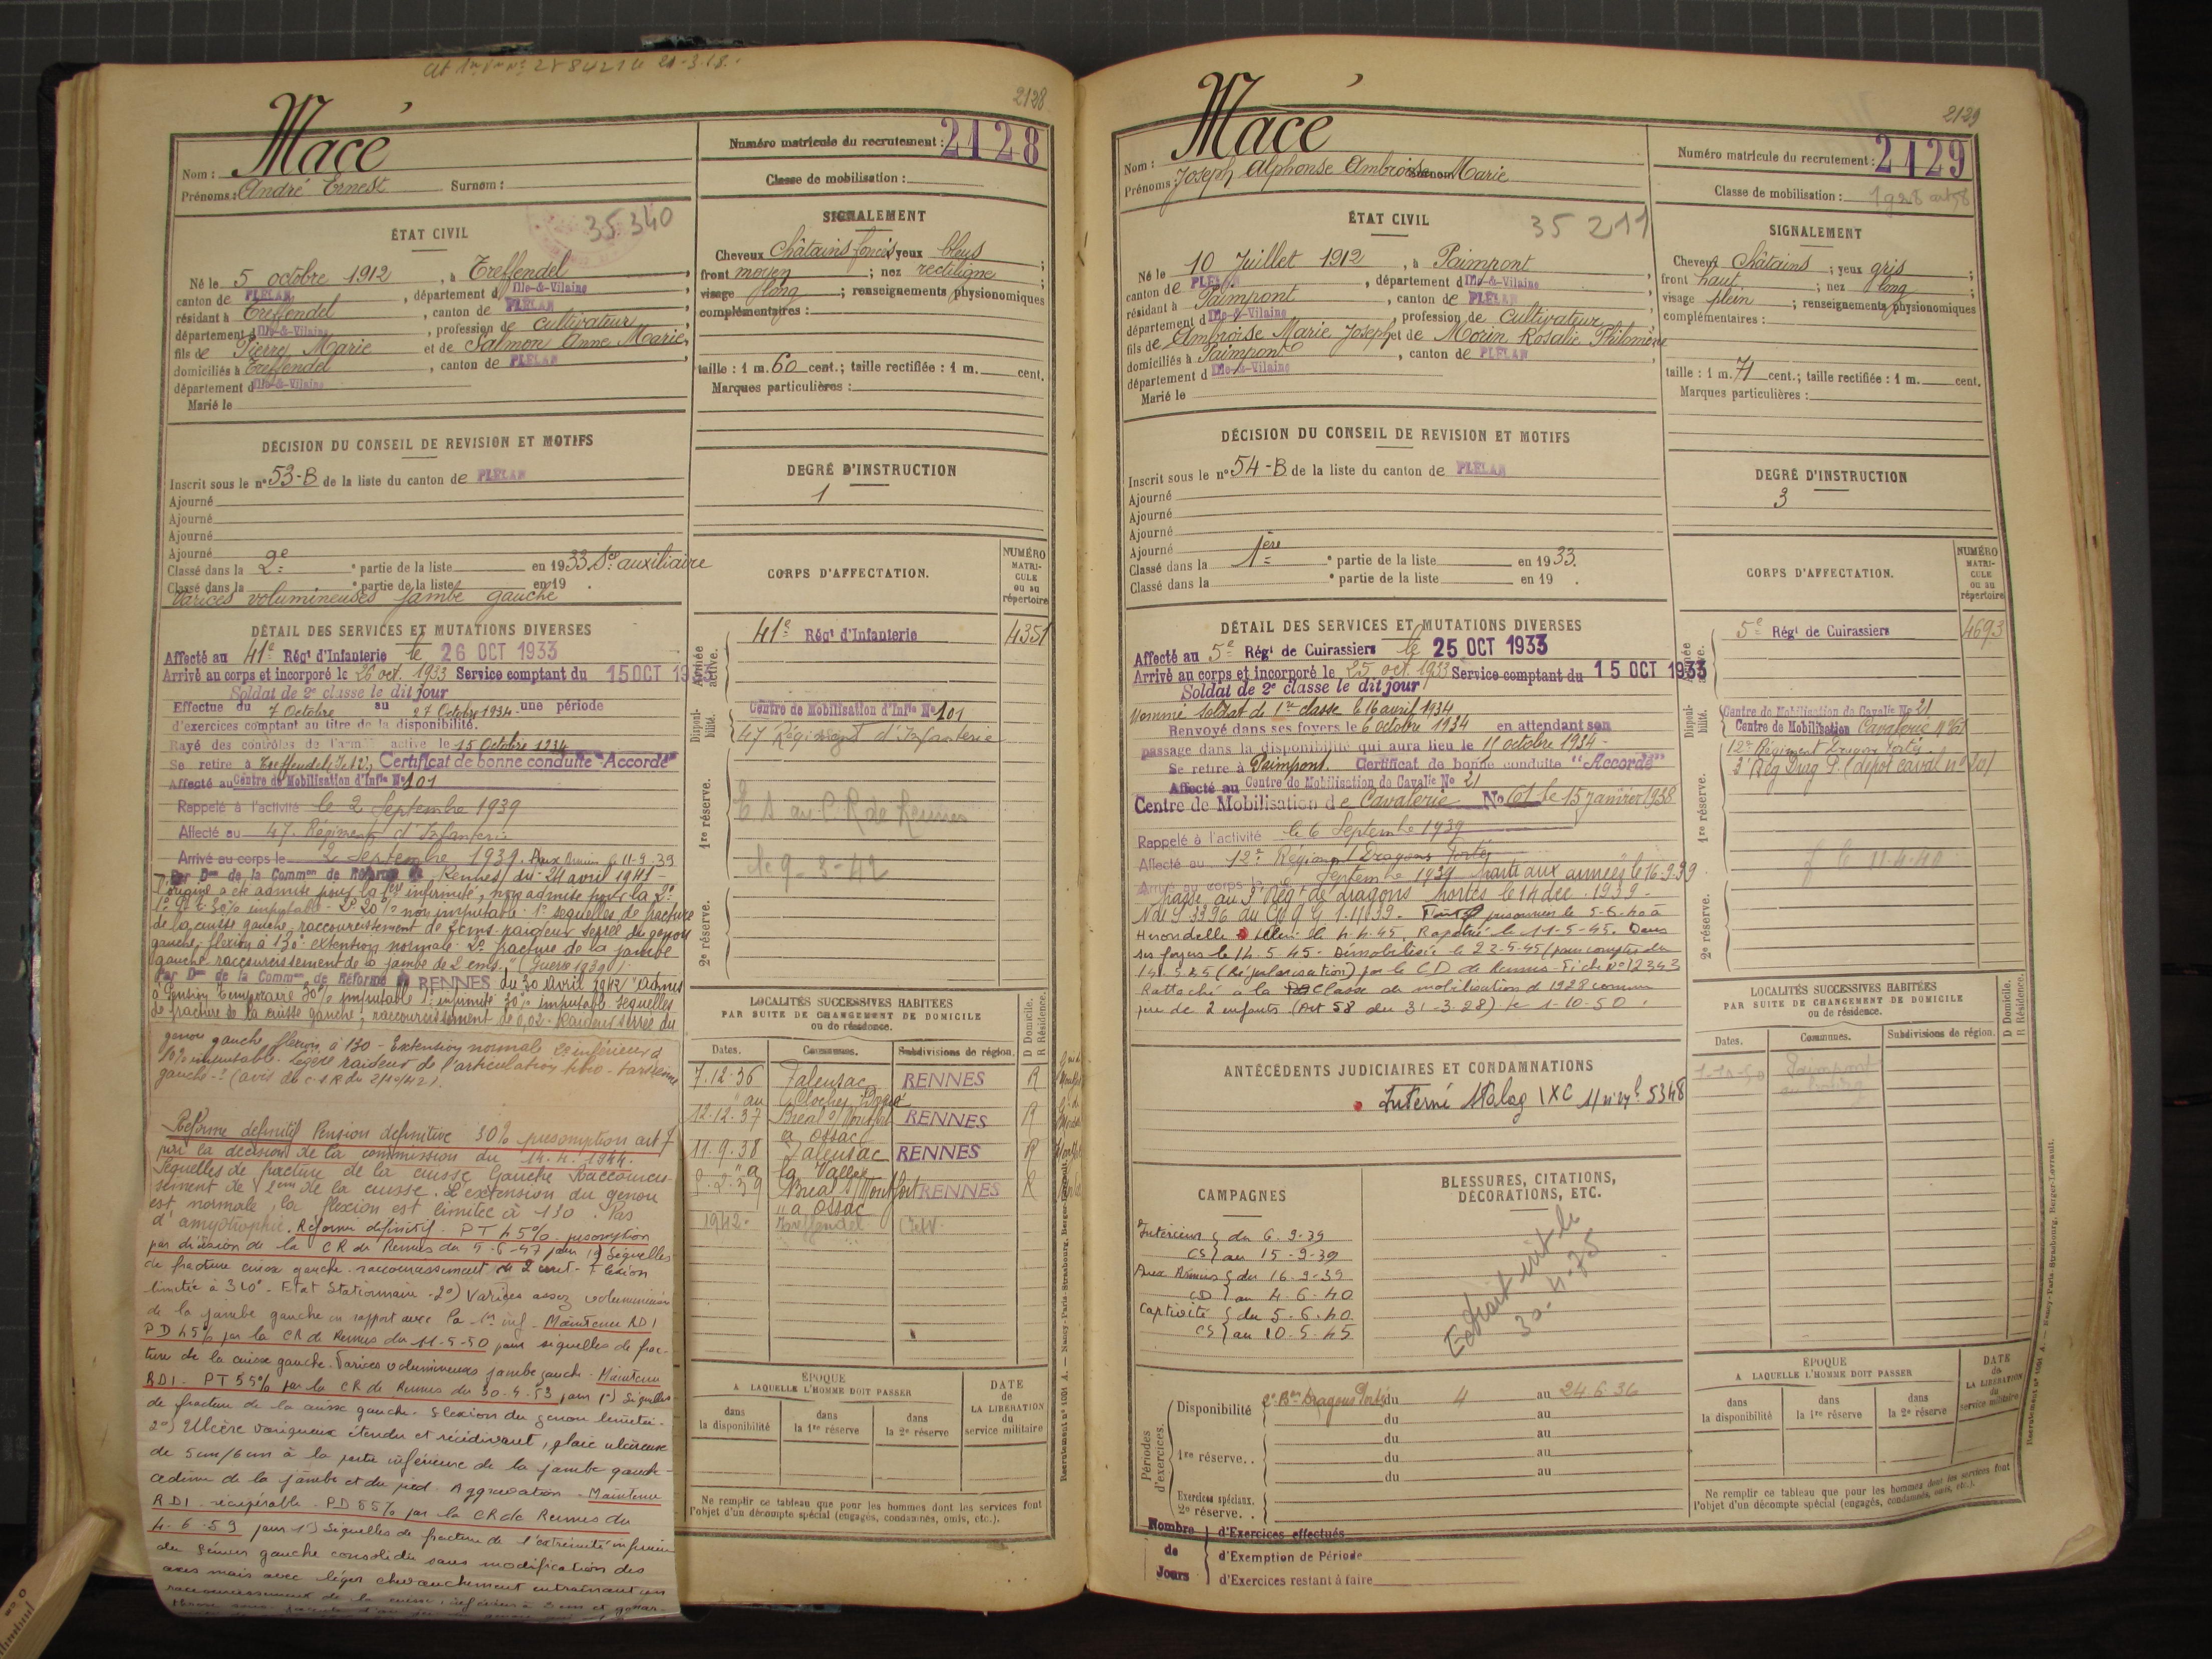 2128
Macé
Nom :
Prénoms : André Ernest Surnom :
Numéro matricule du recrutement : 2128
Classe de mobilisation :
ÉTAT CIVIL
35.340
Né le 5 octobre 1912, à Treffendel,
canton de PLÉLAN, département d'Ille-&-Vilaine,
résidant à Treffendel, canton de PLÉLAN,
département d'Ille-&-Vilaine, profession de cultivateur,
fils de Pierre Marie et de Salmon Anne Marie,
domiciliés à Treffendel, canton de PLÉLAN,
département d'Ille-&-Vilaine
Marié le
SIGNALEMENT
Cheveux châtains foncés yeux bleus ;
front moyen ; nez rectiligne ;
visage long ; renseignements physionomiques
complémentaires :
taille : 1 m. 60 cent.; taille rectifiée : 1 m. cent.
Marques particulières :
DÉCISION DU CONSEIL DE REVISION ET MOTIFS
Inscrit sous le n° 53-B de la liste du canton de PLÉLAN
Ajourné
Ajourné
Ajourné
Ajourné
Classé dans la 2e partie de la liste en 1933 Sce auxiliaire
Classé dans la partie de la liste en 19 .
Varices volumineuses jambe gauche
DEGRÉ D'INSTRUCTION
1
DÉTAIL DES SERVICES ET MUTATIONS DIVERSES
Affecté au 41e Régt d'Infanterie le 26 OCT 1933
Arrivé au corps et incorporé le 26 oct. 1933 Service comptant du 15 OCT 1933
Soldat de 2e classe le dit jour
Effectue du 7 Octobre au 27 Octobre 1934 une période
d'exercices comptant au titre de la disponibilité.
Rayé des contrôles de l'armée active le 15 Octobre 1934
Se retire à Treffendel, I&V, Certificat de bonne conduite "Accordé"
Affecté au Centre de Mobilisation d'Infie No 101
Rappelé à l'activité le 2 Septembre 1939
Affecté au 47e Régiment d'Infanterie
Arrivé au corps le 2 Septembre 1939. Aux Armées le 11-9-39
Par Don de la Common de Réforme de Rennes du 24 avril 1941
l'origine a été admise pour la 1ère infirmité, non admise pour la 2e
1° P.T. 30% imputable. 2° 20% non imputable. 1° sequelles de fracture
de la cuisse gauche, raccourcissement de 2 cms. raideur serrée du genou
gauche, flexion à 130° extension normale. 2° fracture de la jambe
gauche raccourcissement de la jambe de 2 cms." (Guerre 1939)
Par Don de la Common de Réforme de RENNES du 30 Avril 1942 "Admis
à Pension Temporaire 30% imputable 1ère infirmité 30% imputable séquelles
de fracture de la cuisse gauche, raccourcissement de 0,02. Raideur serrée du
genou gauche flexion à 130 - Extension normale 2°
10% imputable. légère raideur de l'articulation tibio-tarsienne
gauche
Réforme définitif Pension définitive 30% présomption art 7
par la décision de la commission du 14.4.1944.
Séquelles de fracture de la cuisse Gauche Raccourcis-
sement de 2cm de la cuisse. L'extension du genou
est normale, la flexion est limitée à 130. Pas
d'amyotrophie. Réforme définitif. PT 45% présomption
par décision de la CR de Rennes du 5-6-47 pour 1°) Séquelles
de fracture cuisse gauche. raccourcissement de 2 cent. Flexion
limitée à 310°. Etat Stationnaire. 2°) Varices assez volumineuses
de la jambe gauche en rapport avec la 1re inf. Maintenu RD1
PD 45% par la CR de Rennes du 11-5-50 pour séquelles de frac-
ture de la cuisse gauche. Varices volumineuses jambe gauche. Maintenu
RD1. PT 55% par la CR de Rennes du 30-4-53 pour 1°) Séquelles
de fracture de la cuisse gauche. Flexion du genou limitée.
2°) Ulcère variqueux étendu et récidivant, plaie ulcéreuse
de 5cm/6cm à la partie inférieure de la jambe gauche
œdème de la jambe et du pied. Aggravation. Maintenu
RD1 récupérable. PD 55% par la CR de Rennes du
4-6-59 pour 1°) Séquelles de fracture de l'extrémité inférieure
du fémur gauche consolidée sans modification des
axes mais avec léger chevauchement entraînant un
raccourcissement de la cuisse, inférieur à 3 cm et
CORPS D'AFFECTATION.
NUMÉRO MATRICULE ou au répertoire
Armée active.
41e Régt d'Infanterie 4351
Disponibilité.
Centre de Mobilisation d'Infie No 101
47 Régiment d'Infanterie
1re réserve.
au C R de Rennes
le 9-3-42
2e réserve.
LOCALITÉS SUCCESSIVES HABITÉES
PAR SUITE DE CHANGEMENT DE DOMICILE
ou de résidence.
D Domicile. R Résidence.
Dates. Communes. Subdivisions de région.
7.12.36 Talensac RENNES R
au Clocher
12.12.37 Bréal s/ Montfort RENNES R
à Ossac
11.9.38 Talensac RENNES R
à la Vallée
Bréal s/ Montfort RENNES R
à Ossac
1942. Treffendel I&V.
ÉPOQUE
A LAQUELLE L'HOMME DOIT PASSER
dans la disponibilité
dans la 1re réserve
dans la 2e réserve
DATE de LA LIBÉRATION du service militaire
Ne remplir ce tableau que pour les hommes dont les services font
l'objet d'un décompte spécial (engagés, condamnés, omis, etc.).
Recrutement n° 1091 A. — Nancy-Paris-Strasbourg, Berger-Levrault.
2129
Macé
Nom :
Prénoms : Joseph Alphonse Ambroise Marie
Numéro matricule du recrutement : 2129
Classe de mobilisation : 1928 art 58
ÉTAT CIVIL
35 211
Né le 10 Juillet 1912, à Paimpont,
canton de PLÉLAN, département d'Ille-&-Vilaine,
résidant à Paimpont, canton de PLÉLAN
département d'Ille-&-Vilaine, profession de cultivateur,
fils de Ambroise Marie Joseph et de Morin Rosalie Philomène
domiciliés à Paimpont, canton de PLÉLAN
département d'Ille-&-Vilaine
Marié le
SIGNALEMENT
Cheveux châtains ; yeux gris ;
front haut ; nez long ;
visage plein ; renseignements physionomiques
complémentaires :
taille : 1 m. 71 cent.; taille rectifiée : 1 m. cent.
Marques particulières :
DÉCISION DU CONSEIL DE REVISION ET MOTIFS
Inscrit sous le n° 54-B de la liste du canton de PLÉLAN
Ajourné
Ajourné
Ajourné
Ajourné
Classé dans la 1ère partie de la liste en 1933.
Classé dans la partie de la liste en 19 .
DEGRÉ D'INSTRUCTION
3
DÉTAIL DES SERVICES ET MUTATIONS DIVERSES
Affecté au 5e Régt de Cuirassiers le 25 OCT 1933
Arrivé au corps et incorporé le 25 oct. 1933 Service comptant du 15 OCT 1933
Soldat de 2e classe le dit jour
Nommé soldat de 1re classe le 16 avril 1934
Renvoyé dans ses foyers le 6 octobre 1934 en attendant son
passage dans la disponibilité qui aura lieu le 15 octobre 1934.
Se retire à Paimpont. Certificat de bonne conduite "Accordé"
Affecté au Centre de Mobilisation de Cavalie No 21
Centre de Mobilisation de Cavalerie No 61 le 15 janvier 1938
Rappelé à l'activité le 6 Septembre 1939
Affecté au 12e Régiment Dragons Portés
Arrivé au corps le 6 Septembre 1939 parti aux armées le 16.9.39
Passé au 3e Régt de dragons portés le 14 dec. 1939.
Fait prisonnier le 5-6-40 à
Hérondelle le 4-4-45. Rapatrié le 11-5-45. Dans
ses foyers le 14.5.45. Démobilisé le 23-5-45 (pour compter du
14.5.45 (Régularisation) par le CD de Rennes. Fiche No 12343
Rattaché à la classe de mobilisation de 1928 comme
père de 2 enfants (Art 58 du 31-3-28) le 1-10-50.
ANTÉCÉDENTS JUDICIAIRES ET CONDAMNATIONS
Interné Stalag IXC 5348
CAMPAGNES
Intérieur du 6.9.39
CS au 15-9-39
Aux Armées du 16.9.39
CD au 4.6.40
Captivité du 5.6.40
CS au 10.5.45
BLESSURES, CITATIONS, DÉCORATIONS, ETC.
30.4.75
Périodes d'exercices.
Disponibilité 2e Bon Dragons Portés du 4 au 24.6.36
du au
du au
1re réserve. . du au
du au
du au
Exercices spéciaux.
2e réserve. .
Nombre de Jours
d'Exercices effectués
d'Exemption de Période
d'Exercices restant à faire
CORPS D'AFFECTATION.
NUMÉRO MATRICULE ou au répertoire
Armée active.
5e Régt de Cuirassiers 4693
Disponibilité.
Centre de Mobilisation de Cavalie No 21
Centre de Mobilisation Cavalerie No 61
1re réserve.
12e Régiment Dragons Portés
3e Rég Drag P. (dépôt caval
2e réserve.
LOCALITÉS SUCCESSIVES HABITÉES
PAR SUITE DE CHANGEMENT DE DOMICILE
ou de résidence.
D Domicile. R Résidence.
Dates. Communes. Subdivisions de région.
1-10-50 Paimpont
au bourg
ÉPOQUE
A LAQUELLE L'HOMME DOIT PASSER
dans la disponibilité
dans la 1re réserve
dans la 2e réserve
DATE de LA LIBÉRATION du service militaire
Ne remplir ce tableau que pour les hommes dont les services font
l'objet d'un décompte spécial (engagés, condamnés, omis, etc.).
Recrutement n° 1091 A. — Nancy-Paris-Strasbourg, Berger-Levrault.